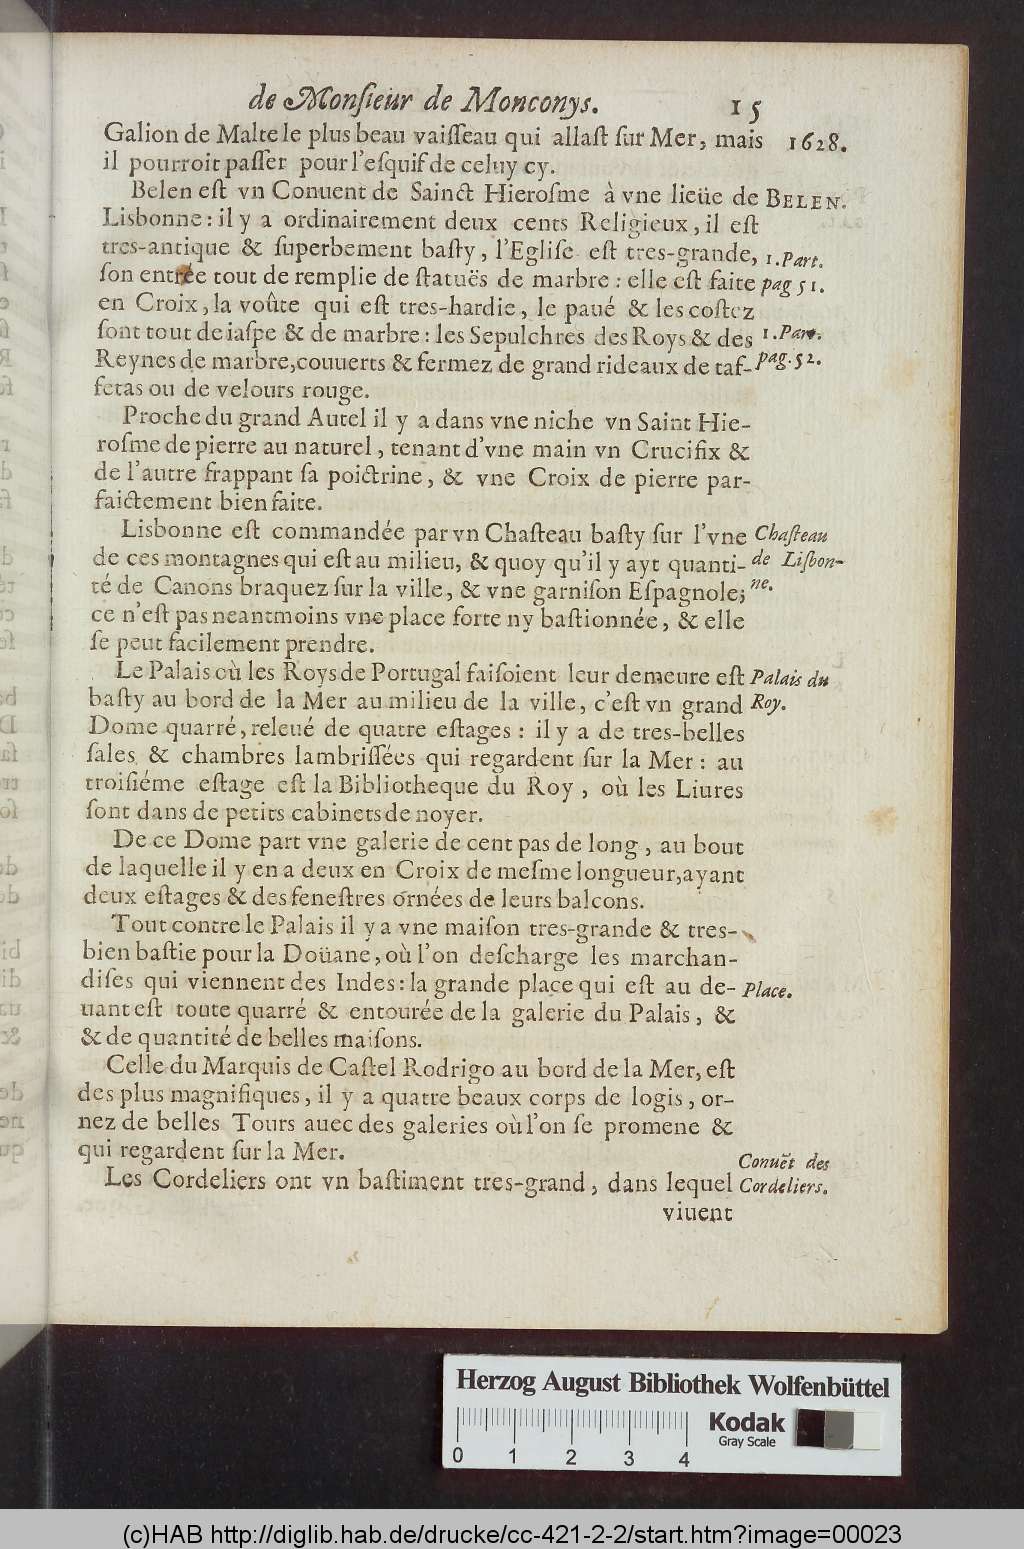 de Monſieur de Monconys. 15
Galion de Malte le plus beau vaiſſeau qui allaſt ſur Mer, mais 1628.
il pourroit paſſer pour l'eſquif de celuy cy.
Belen eſt vn Conuent de Sainct Hieroſme à vne lieüe de BELEN.
Lisbonne: il y a ordinairement deux cents Religieux, il eſt
tres-antique & ſuperbement baſty, l'Egliſe eſt tres-grande, 1. Part.
ſon entrée tout de remplie de ſtatuës de marbre: elle eſt faite pag 51.
en Croix, la voûte qui eſt tres-hardie, le paué & les coſtez
ſont tout de iaſpe & de marbre: les Sepulchres des Roys & des 1. Part.
Reynes de marbre, couuerts & fermez de grand rideaux de taf- pag. 52.
fetas ou de velours rouge.
Proche du grand Autel il y a dans vne niche vn Saint Hie-
roſme de pierre au naturel, tenant d'vne main vn Crucifix &
de l'autre frappant ſa poictrine, & vne Croix de pierre par-
faictement bien faite.
Lisbonne eſt commandée par vn Chaſteau baſty ſur l'vne Chaſteau
de ces montagnes qui eſt au milieu, & quoy qu'il y ayt quanti- de Liſbon-
té de Canons braquez ſur la ville, & vne garniſon Eſpagnole; ne.
ce n'eſt pas neantmoins vne place forte ny baſtionnée, & elle
ſe peut facilement prendre.
Le Palais où les Roys de Portugal faiſoient leur demeure eſt Palais du
baſty au bord de la Mer au milieu de la ville, c'eſt vn grand Roy.
Dome quarré, releué de quatre eſtages: il y a de tres-belles
ſales & chambres lambriſſées qui regardent ſur la Mer: au
troiſiéme eſtage eſt la Bibliotheque du Roy, où les Liures
ſont dans de petits cabinets de noyer.
De ce Dome part vne galerie de cent pas de long, au bout
de laquelle il y en a deux en Croix de meſme longueur, ayant
deux eſtages & des feneſtres ornées de leurs balcons.
Tout contre le Palais il y a vne maiſon tres-grande & tres-
bien baſtie pour la Doüane, où l'on deſcharge les marchan-
diſes qui viennent des Indes: la grande place qui eſt au de- Place.
uant eſt toute quarré & entourée de la galerie du Palais, &
& de quantité de belles maiſons.
Celle du Marquis de Caſtel Rodrigo au bord de la Mer, eſt
des plus magnifiques, il y a quatre beaux corps de logis, or-
nez de belles Tours auec des galeries où l'on ſe promene &
qui regardent ſur la Mer.
Conuẽt des
Les Cordeliers ont vn baſtiment tres-grand, dans lequel Cordeliers.
viuent
Herzog August Bibliothek Wolfenbüttel
Kodak
Gray Scale
0 1 2 3 4
(c)HAB http://diglib.hab.de/drucke/cc-421-2-2/start.htm?image=00023